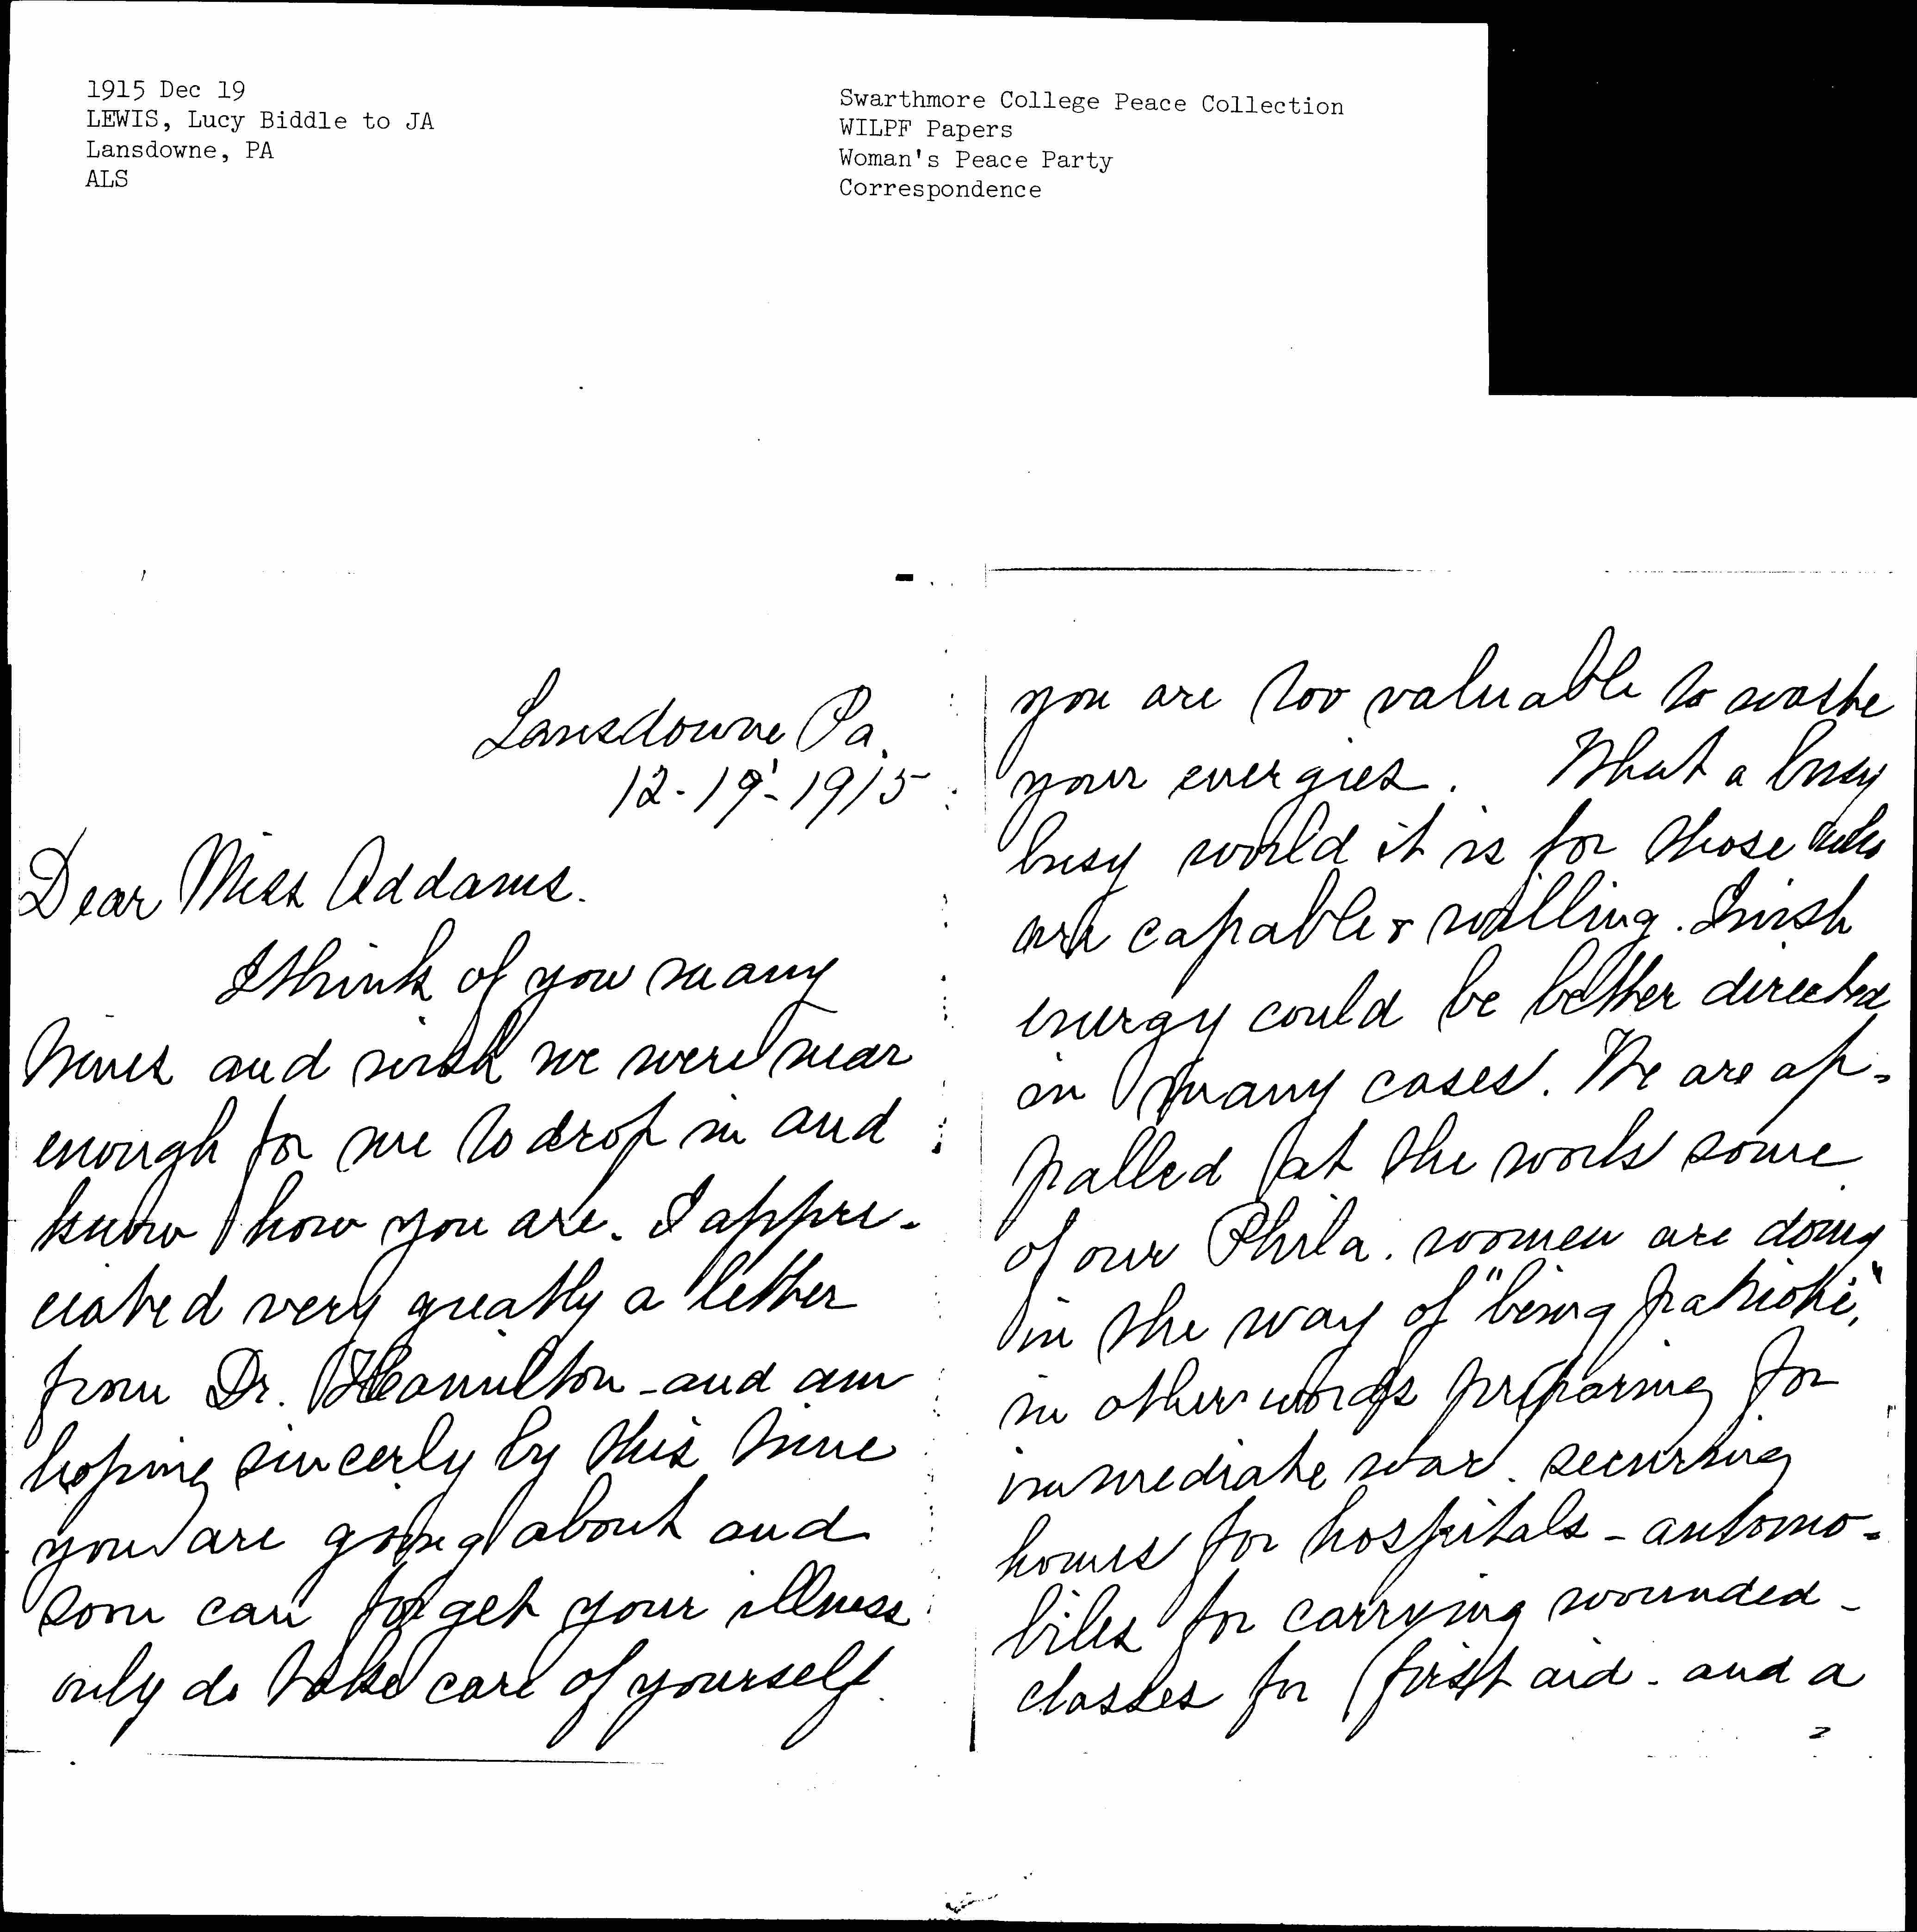 1915 Dec 19
LEWIS, Lucy Biddle to JA
Lansdowne, PA
ALS
Swarthmore College Peace Collection
WILPF Papers
Woman's Peace Party
Correspondence
Lansdowne Pa.
12-19-1915
Dear Miss Addams.
I think of you many
times and wish we were near
enough for me to drop in and
know how you are. I appre-
ciated very greatly a letter
from Dr. Hamilton - and am
hoping sincerly by this time
you are going about and
soon can forget your illness
only do take care of yourself.
you are too valuable to waste
your energies. What a busy
busy world it is for those who
are capable & willing. I wish
energy could be better directed
in many cases. We are ap-
palled at the work some
of our Phila. women are doing
in the way of "being patriotic,"
in other words preparing for
immediate war. securing
homes for hospitals - automo-
biles for carrying wounded -
classes for first aid - and a
2